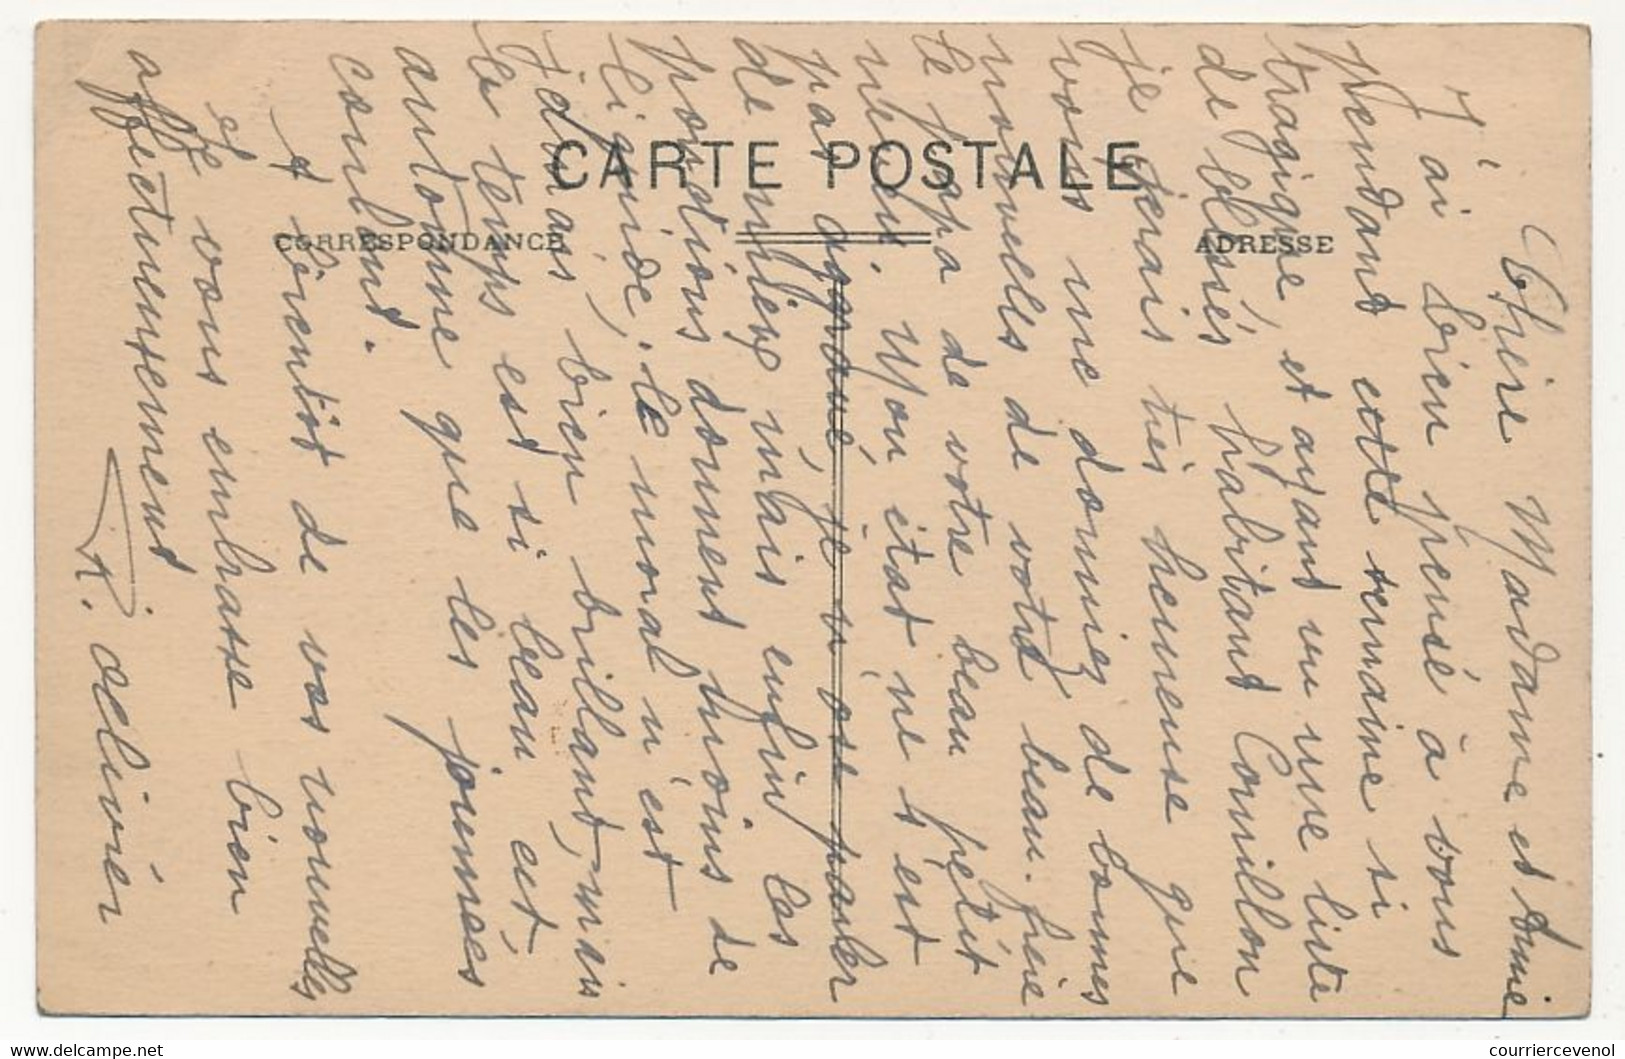 CARTE POSTALE
CORRESPONDANCE
ADRESSE
Chère Madame et Amie
J'ai bien pensé à vous
pendant cette semaine si
tragique, et ayant vu une liste
de blessés habitant Cornillon
je serais très heureuse que
vous me donniez de bonnes
nouvelles de votre beau-frère
le papa de votre beau petit
neveu. Mon état ne s'est
pas aggravé, je n'ose parler
de mieux mais enfin les
ponctions donnent moins de
liquide, le moral n'est
pas bien brillant, mais
le temps est si beau cet
automne que les journées
coulent.
A bientôt de vos nouvelles
et je vous embrasse bien
affectueusement
R. Ollivier
courriercevenol
www.delcampe.net